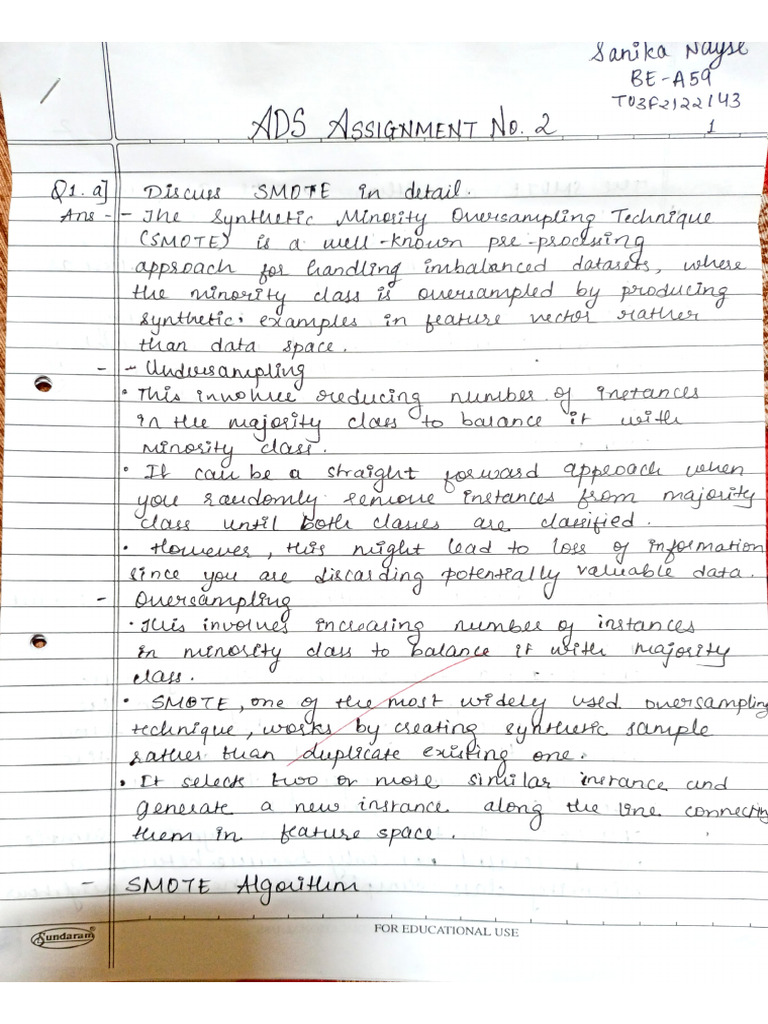 Sanika Nayse
BE-A59
TU3F2122143
1
ADS ASSIGNMENT NO. 2
Q1. a] Discuss SMOTE in detail.
Ans - - The Synthetic Minority Oversampling Technique
(SMOTE) is a well-known pre-processing
approach for handling imbalanced datasets, where
the minority class is oversampled by producing
synthetic examples in feature vector rather
than data space.
- - Undersampling
• This involve reducing number of instances
in the majority class to balance it with
minority class.
• It can be a straight forward approach when
you randomly remove instances from majority
class until both classes are classified.
• However, this might lead to loss of information
since you are discarding potentially valuable data.
- Oversampling
• This involves increasing number of instances
in minority class to balance it with majority
class.
• SMOTE, one of the most widely used oversampling
technique, works by creating synthetic sample
rather than duplicate existing one.
• It select two or more similar instance and
generate a new instance along the line connecting
them in feature space.
- SMOTE Algorithm
Sundaram
FOR EDUCATIONAL USE